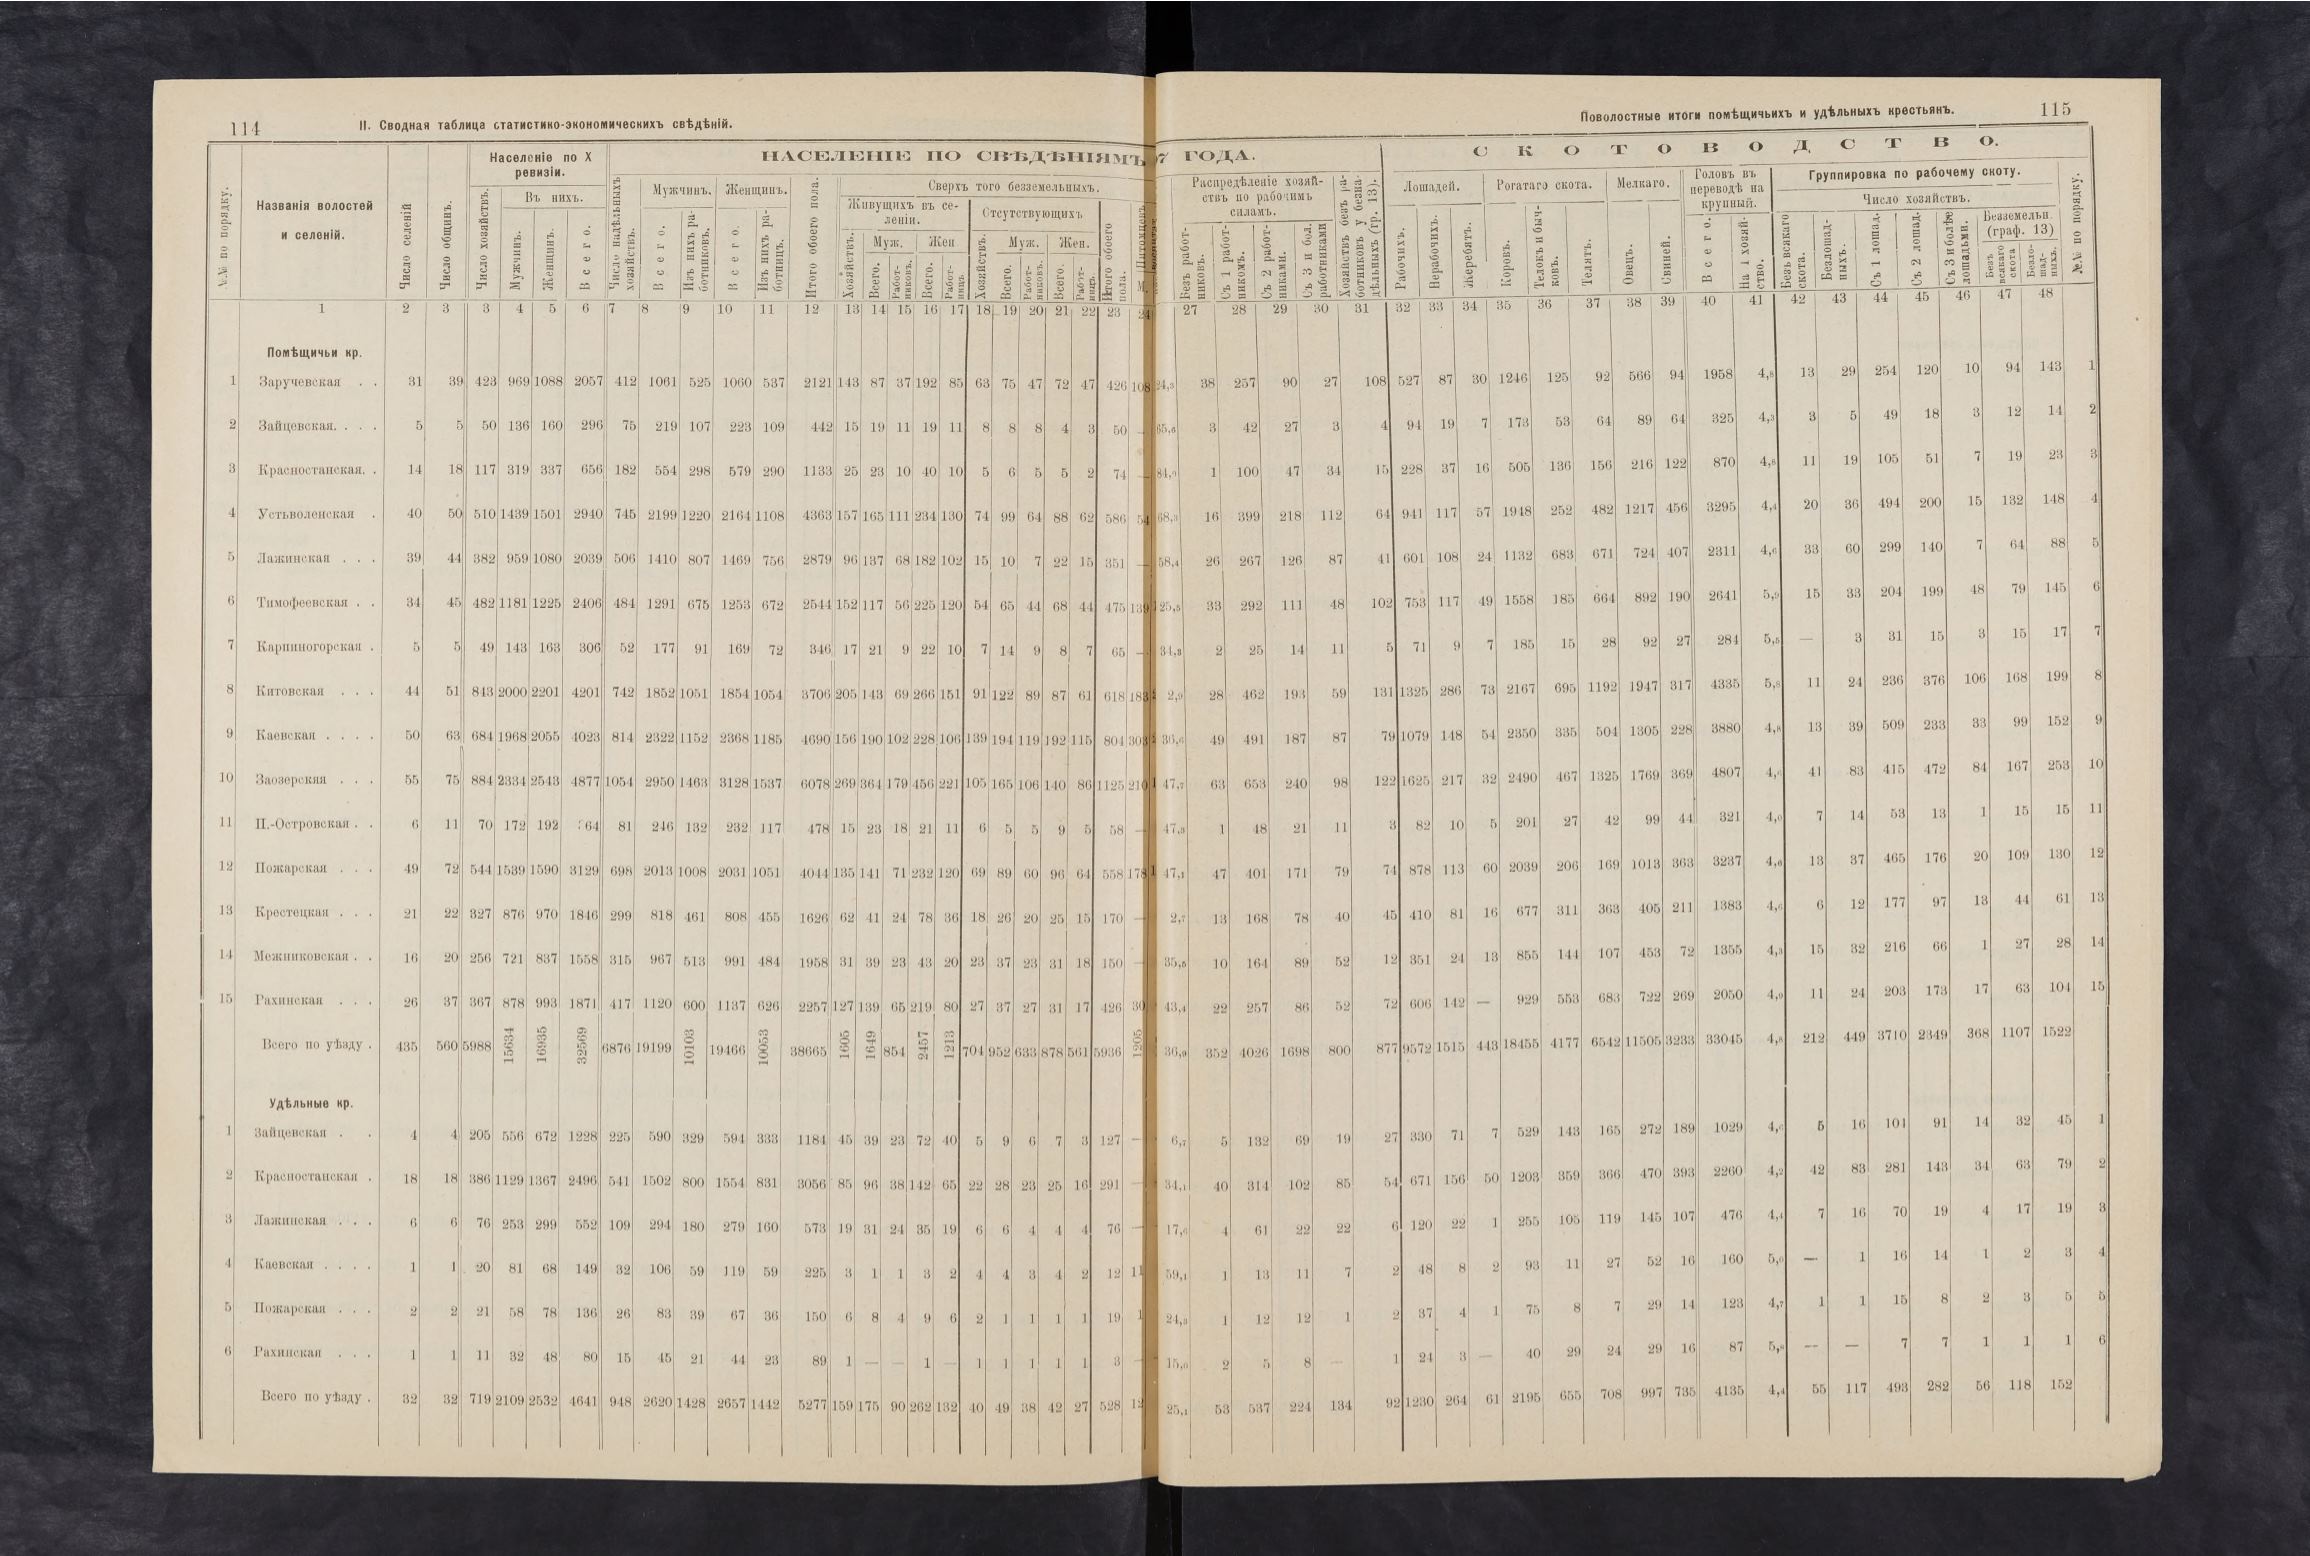 114
II. Сводная таблица статистико-экономическихъ свѣдѣній.
Поволостные итоги помѣщичьихъ и удѣльныхъ крестьянъ.
115
№№ по порядку.
Названія волостей и селеній.
Число селеній
Число общинъ.
Населеніе по X ревизіи.
Число хозяйствъ.
Въ нихъ.
Мужчинъ.
Женщинъ.
Всего.
НАСЕЛЕНІЕ ПО СВѢДѢНІЯМЪ 7 ГОДА.
Число надѣльныхъ хозяйствъ.
Мужчинъ.
Всего.
Изъ нихъ работниковъ.
Женщинъ.
Всего.
Изъ нихъ работницъ.
Итого обоего пола.
Сверхъ того безземельныхъ.
Живущихъ въ селеніи.
Хозяйствъ.
Муж.
Всего.
Работниковъ.
Жен
Всего.
Работницъ
Отсутствующихъ
Хозяйствъ.
Муж.
Всего.
Работниковъ.
Жен.
Всего.
Работницъ.
Итого обоего пола.
Распредѣленіе хозяйствъ по рабочимъ силамъ.
Безъ работниковъ.
Съ 1 работникомъ.
Съ 2 работниками.
Съ 3 и бол. работниками
Хозяйствъ безъ работниковъ у безнадѣльныхъ (гр. 13).
СКОТОВОДСТВО.
Лошадей.
Рабочихъ.
Нерабочихъ.
Жеребятъ.
Рогатаго скота.
Коровъ.
Телокъ и бычковъ.
Телятъ.
Мелкаго.
Овецъ.
Свиней.
Головъ въ переводѣ на крупный.
Всего.
На 1 хозяйство.
Группировка по рабочему скоту.
Число хозяйствъ.
Безъ всякаго скота.
Безлошадныхъ.
Съ 1 лошад.
Съ 2 лошад.
Съ 3 и болѣе лошадьми.
Безземельн. (граф. 13)
Безъ всякаго скота
Безлошадныхъ.
№№ по порядку.
1 2 3 3 4 5 6 7 8 9 10 11 12 13 14 15 16 17 18 19 20 21 22 23 24 27 28 29 30 31 32 33 34 35 36 37 38 39 40 41 42 43 44 45 46 47 48
Помѣщичьи кр.
1 Заручевская . . 31 39 423 969 1088 2057 412 1061 525 1060 537 2121 143 87 37 192 85 63 75 47 72 47 426 108 24,3 38 257 90 27 108 527 87 30 1246 125 92 566 94 1958 4,8 13 29 254 120 10 94 143 1
2 Зайцевская. . . . 5 5 50 136 160 296 75 219 107 223 109 442 15 19 11 19 11 8 8 8 4 3 50 — 65,6 3 42 27 3 4 94 19 7 173 53 64 89 64 325 4,3 3 5 49 18 3 12 14 2
3 Красностанская. . 14 18 117 319 337 656 182 554 298 579 290 1133 25 23 10 40 10 5 6 5 5 2 74 — 84,9 1 100 47 34 15 228 37 16 505 136 156 216 122 870 4,8 11 19 105 51 7 19 23 3
4 Устьволенская . 40 50 510 1439 1501 2940 745 2199 1220 2164 1108 4363 157 165 111 234 130 74 99 64 88 62 586 54 68,3 16 399 218 112 64 941 117 57 1948 252 482 1217 456 3295 4,4 20 36 494 200 15 132 148 4
5 Лажинская . . . 39 44 382 959 1080 2039 506 1410 807 1469 756 2879 96 137 68 182 102 15 10 7 22 15 351 — 58,4 26 267 126 87 41 601 108 24 1132 683 671 724 407 2311 4,6 33 60 299 140 7 64 88 5
6 Тимофеевская . . 34 45 482 1181 1225 2406 484 1291 675 1253 672 2544 152 117 56 225 120 54 65 44 68 44 475 139 25,5 33 292 111 48 102 753 117 49 1558 185 664 892 190 2641 5,9 15 33 204 199 48 79 145 6
7 Карпиногорская . 5 5 49 143 163 306 52 177 91 169 72 346 17 21 9 22 10 7 14 9 8 7 65 — 34,3 2 25 14 11 5 71 9 7 185 15 28 92 27 284 5,5 — 3 31 15 3 15 17 7
8 Китовская . . . 44 51 843 2000 2201 4201 742 1852 1051 1854 1054 3706 205 143 69 266 151 91 122 89 87 61 618 183 2,9 28 462 193 59 131 1325 286 73 2167 695 1192 1947 317 4335 5,8 11 24 236 376 106 168 199 8
9 Каевская . . . . 50 63 684 1968 2055 4023 814 2322 1152 2368 1185 4690 156 190 102 228 106 139 194 119 192 115 804 303 36,6 49 491 187 87 79 1079 148 54 2350 335 504 1305 228 3880 4,8 13 39 509 233 33 99 152 9
10 Заозерская . . . 55 75 884 2334 2543 4877 1054 2950 1463 3128 1537 6078 269 364 179 456 221 105 165 106 140 86 1125 210 47,7 63 653 240 98 122 1625 217 32 2490 467 1325 1769 369 4807 4,6 41 83 415 472 84 167 253 10
11 П.-Островская . . 6 11 70 172 192 364 81 246 132 232 117 478 15 23 18 21 11 6 5 5 9 5 58 — 47,3 1 48 21 11 3 82 10 5 201 27 42 99 44 321 4,0 7 14 53 13 1 15 15 11
12 Пожарская . . . 49 72 544 1539 1590 3129 698 2013 1008 2031 1051 4044 135 141 71 232 120 69 89 60 96 64 558 178 47,1 47 401 171 79 74 878 113 60 2039 206 169 1013 363 3237 4,6 13 37 465 176 20 109 130 12
13 Крестецкая . . . 21 22 327 876 970 1846 299 818 461 808 455 1626 62 41 24 78 36 18 26 20 25 15 170 — 2,7 13 168 78 40 45 410 81 16 677 311 363 405 211 1383 4,6 6 12 177 97 13 44 61 13
14 Межниковская . . 16 20 256 721 837 1558 315 967 513 991 484 1958 31 39 23 43 20 23 37 23 31 18 150 — 35,5 10 164 89 52 12 351 24 13 855 144 107 453 72 1355 4,3 15 32 216 66 1 27 28 14
15 Рахинская . . . 26 37 367 878 993 1871 417 1120 600 1137 626 2257 127 139 65 219 80 27 37 27 31 17 426 30 43,4 22 257 86 52 72 606 142 — 929 553 683 722 269 2050 4,9 11 24 203 173 17 63 104 15
Всего по уѣзду . 435 560 5988 15634 16935 32569 6876 19199 10103 19466 10053 38665 1605 1649 854 2457 1213 704 952 633 878 561 5936 1205 36,9 352 4026 1698 800 877 9572 1515 443 18455 4177 6542 11505 3233 33045 4,8 212 449 3710 2349 368 1107 1522
Удѣльные кр.
1 Зайцевская . . 4 4 205 556 672 1228 225 590 329 594 333 1184 45 39 23 72 40 5 9 6 7 3 127 — 6,7 5 132 69 19 27 330 71 7 529 143 165 272 189 1029 4,6 5 16 101 91 14 32 45 1
2 Красностанская . 18 18 386 1129 1367 2496 541 1502 800 1554 831 3056 85 96 38 142 65 22 28 23 25 16 291 — 34,1 40 314 102 85 54 671 156 50 1203 359 366 470 393 2260 4,2 42 83 281 143 34 63 79 2
3 Лажинская . . . 6 6 76 253 299 552 109 294 180 279 160 573 19 31 24 35 19 6 6 4 4 4 76 — 17,6 4 61 22 22 6 120 22 1 255 105 119 145 107 476 4,4 7 16 70 19 4 17 19 3
4 Каевская . . . . 1 1 20 81 68 149 32 106 59 119 59 225 3 1 1 3 2 4 4 3 4 2 12 11 59,1 1 13 11 7 2 48 8 2 93 11 27 52 16 160 5,0 — 1 16 14 1 2 3 4
5 Пожарская . . . 2 2 21 58 78 136 26 83 39 67 36 150 6 8 4 9 6 2 1 1 1 1 19 1 24,3 1 12 12 1 2 37 4 1 75 8 7 29 14 123 4,7 1 1 15 8 2 3 5 5
6 Рахинская . . . 1 1 11 32 48 80 15 45 21 44 23 89 1 — — 1 — 1 1 1 1 1 3 — 15,0 2 5 8 — 1 24 3 — 40 29 24 29 16 87 5,8 — — 7 7 1 1 1 6
Всего по уѣзду . 32 32 719 2109 2532 4641 948 2620 1428 2657 1442 5277 159 175 90 262 132 40 49 38 42 27 528 12 25,1 53 537 224 134 92 1230 264 61 2195 655 708 997 735 4135 4,4 55 117 493 282 56 118 152